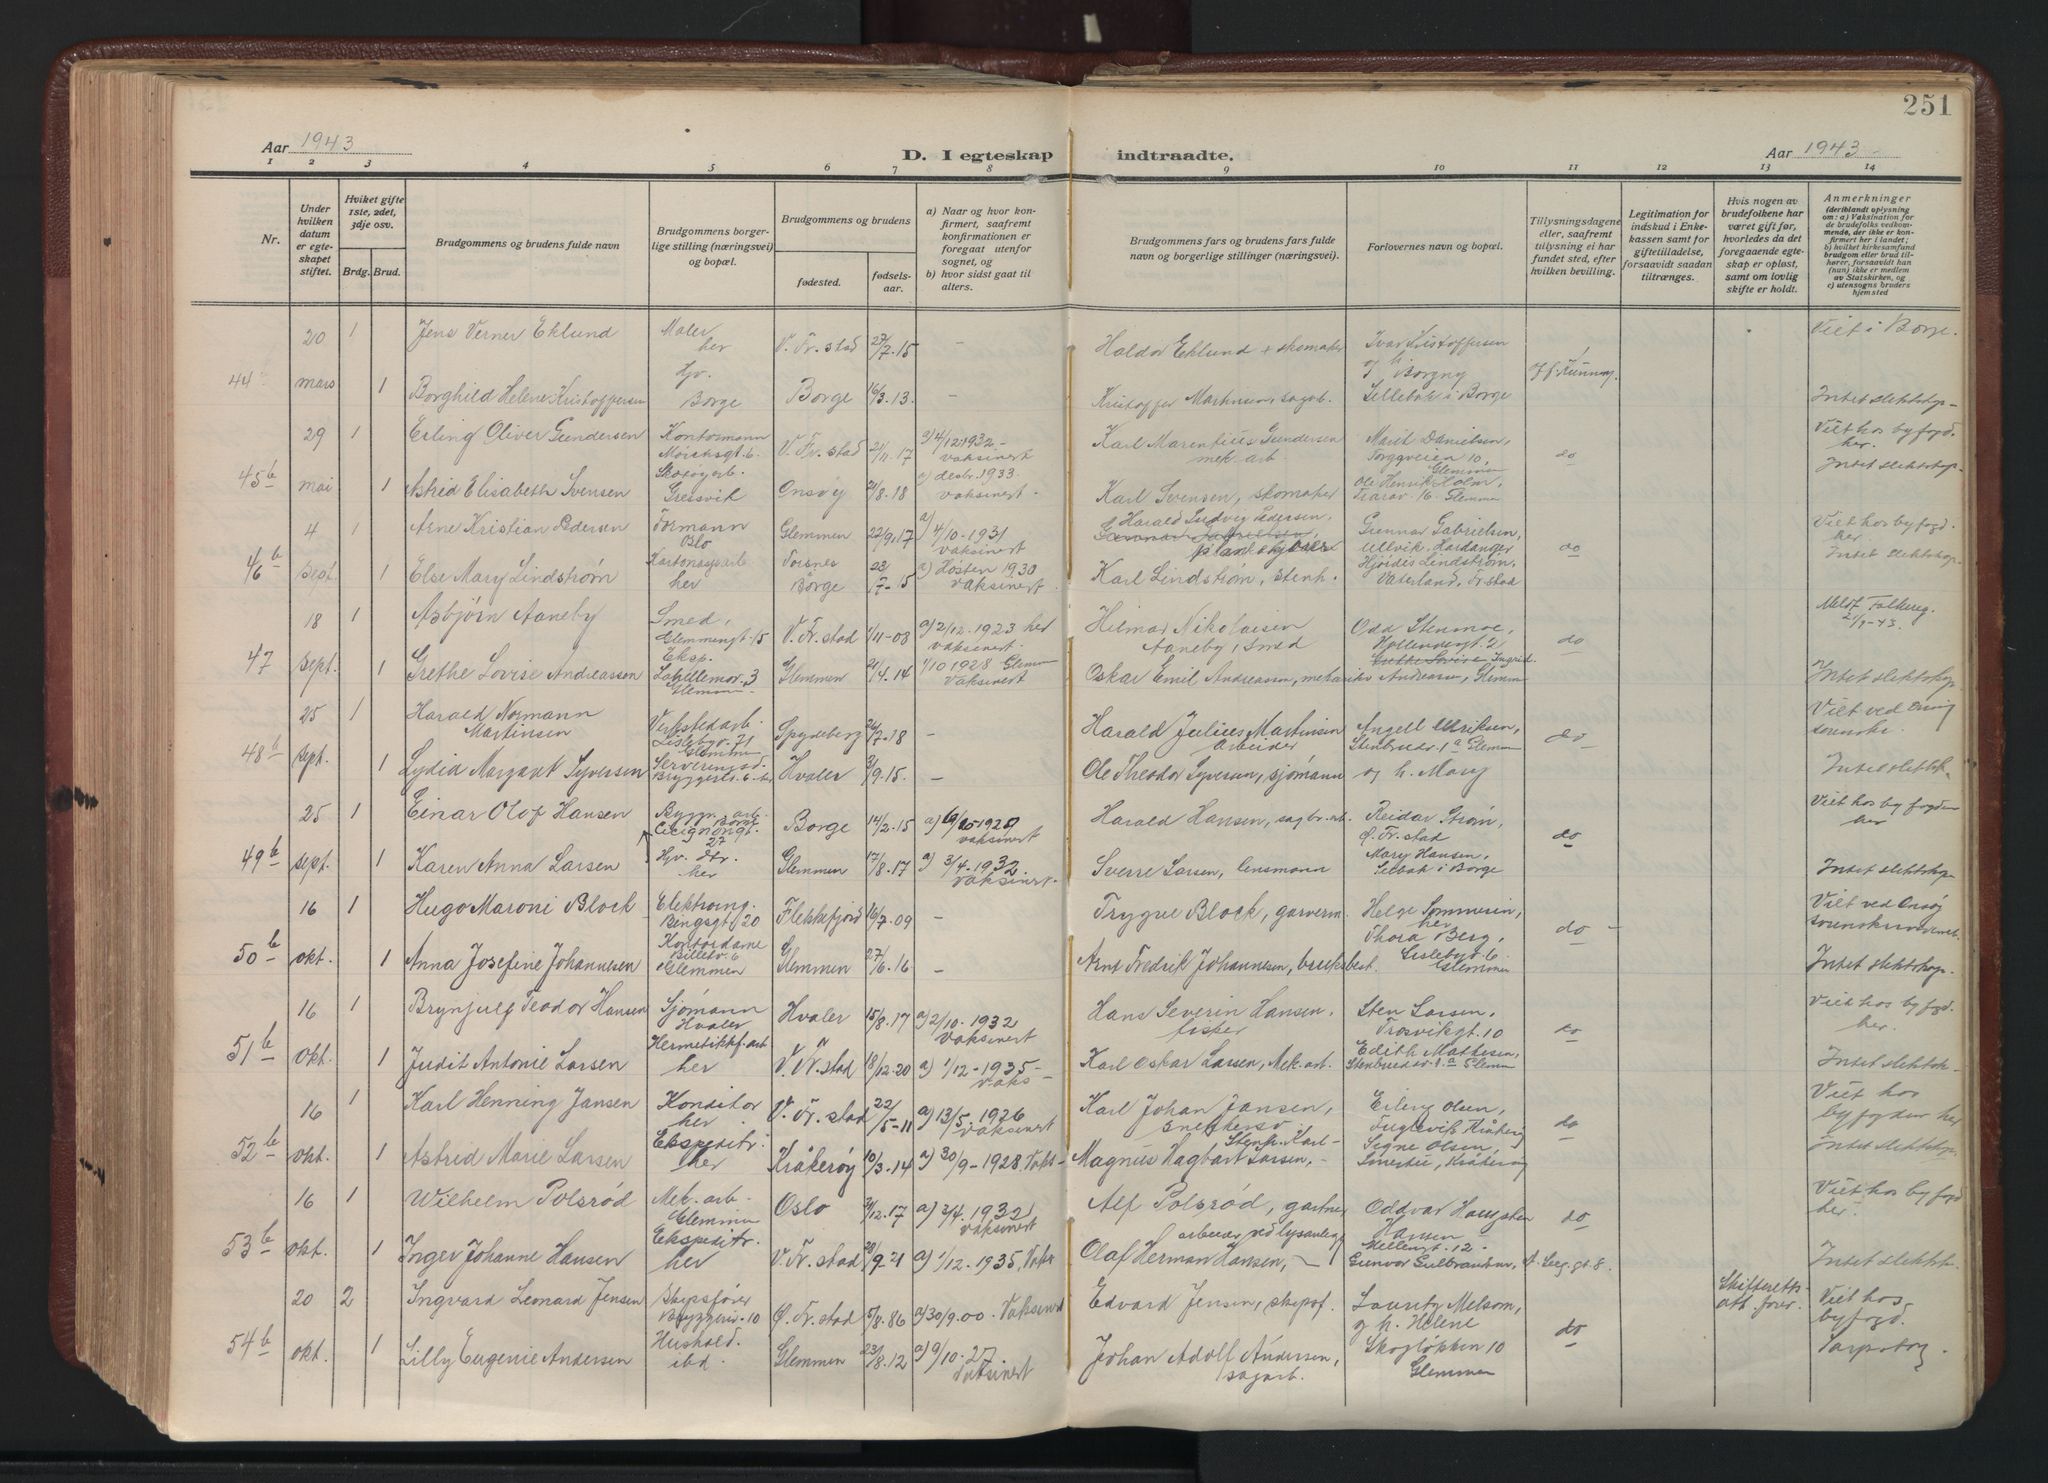 251
Aar 1943
D. I egteskap indtraadte.
Aar 1943
1 2 3 4 5 6 7 8 9 10 11 12 13 14
Nr.
Under hvilken datum er egteskapet stiftet.
Hvilket gifte 1ste, 2det, 3dje osv.
Brdg. Brud.
Brudgommens og brudens fulde navn
Brudgommens borgerlige stilling (næringsvei) og bopæl.
Brudgommens og brudens
fødested. fødselsaar.
a) Naar og hvor konfirmert, saafremt konfirmationen er foregaat utenfor sognet, og
b) hvor sidst gaat til alters.
Brudgommens fars og brudens fars fulde navn og borgerlige stillinger (næringsvei).
Forlovernes navn og bopæl.
Tillysningsdagene eller, saafremt tillysning ei har fundet sted, efter hvilken bevilling.
Legitimation for indskud i Enkekassen samt for giftetilladelse, forsaavidt saadan tiltrænges.
Hvis nogen av brudefolkene har været gift før, hvorledes da det foregaaende egteskap er opløst, samt om lovlig skifte er holdt.
Anmerkninger
(deriblandt oplysning om: a) Vaksination for de brudefolks vedkommende, der ikke er konfirmert her i landet; b) hvilket kirkesamfund brudgom eller brud tilhører, forsaavidt han (hun) ikke er medlem av Statskirken, og c) utensogns bruders hjemsted
20 1 Jens Verner Eklund Maler her V. Fr.stad 27/7.15 - Haldor Eklund + skomaker Ivar Kristoffersen Viet i Borge.
44 mars 1 Borghild Helene Kristoffersen Hjv. Borge Borge 16/3.13. - Kristoffer Martinsen, sagarb. og h. Borgny Sellebak i Borge Intet slektskap
29 1 Erling Oliver Gundersen Kontormann V. Fr.stad 21/11.17 a) 4/12.1932 - vaksinert Karl Marentius Gundersen mek. arb. Marit Danielsen, Torggveien 10, Glemmen do Viet hos byfogd. her.
45 b mai 1 Astrid Elisabeth Svensen Gressvik Onsøy 21/8.18 a) desbr. 1933. vaksinert - Karl Svensen, skomaker Ole Henrik Holm, Trarav. 16. Glemmen Intet slektskap
4 1 Arne Kristian Pedersen Formann Oslo Glemmen 22/9.17 a) 4/10-1931 vaksinert Harald Ludvig Pedersen, plankekjører Gunnar Gabrielsen, Ullvik. Hardanger do Viet hos byfogd. her
46 b Sept. 1 Else Mary Lindstrøm Kartonagearb her Torsnes Borge 22/7-15 a) Høsten 1930 vaksinert. Karl Lindstrøm, stenh. Hjørdis Lindstrøm, Vaterland, Fr.stad Intet slektskap
18 1 Asbjørn Aaneby Smed, Glemmengt. 15 V. Fr.stad 1/11-08 a) 2/12.1923 her vaksinert. Hilmar Nikolaisen Aaneby, smed Odd Stenmoe, Hollendergt. 2 do Meldt Folkereg. 21/9-43.
47 Sept. 1 Grethe Lovise Andreassen Eksp. 3 Glemmen Glemmen 21/4.14 1/10 1928 Glemm vaksinert Oskar Emil Andreassen, mekaniker Ingrid Andreassen, Glemmen Intet slektskap.
25 1 Harald Normann Martinsen Verkstedarb. Lislebyv. 71 Glemmen Spydeberg 26/7.18 - Harald Julius Martinsen Arbeider Angell Ulriksen, Stenbruddv. 1 a Glemm do Viet ved Onsøy sorenskr.
48 b Sept. 1 Lydia Margaret Syversen Serveringsd. Hvaler 3/9.15. - Ole Theodor Syversen, sjømann og h. Mary Intet slektsk.
25 1 Einar Olof Hansen Bygn. arb. Borge Borge 14/2.15 vaksinert Harald Hansen, sagbr. arb. Reidar Strøm, Ø. Fr.stad do Viet hos byfogden her
49 b sept. 1 Karen Anna Larsen Hjv. dtr. her Glemmen 17/8.17 a) 3/4.1932. vaksinert. Sverre Larsen, lensmann Mary Hansen, Selbak i Borge Intet slektskap
16 1 Hugo Maroni Block Elektroing. Bingsgt. 20 Flekkefjord 16/7.09 - Trygve Block, garverm. Helge Sommerin, her do - Viet ved Onsøy sorenskriverembet.
50 b okt. 1 Anna Josefine Johannesen Kontordame Billebv. 6 Glemmen Glemmen 27/6.16 - Arnt Fredrik Johannesen, bruksbest. Thora Berg, Lislebyv. 6 Glemmen Intet slektskap.
16 1 Brynjulf Teodor Hansen Sjømann Hvaler Hvaler 15/8.17 a) 2/10.1932 Vaksinert Hans Severin Hansen, fisker Sten Larsen, Trosvikgt. 10 do Viet hos byfogd. her.
51 b okt. 1 Judit Antonie Larsen Hermetikkf. arb her V. Fr.stad 18/12.20 a) 1/12-1935- Vaks - Karl Oskar Larsen, Mek. arb. Edith Mathesen, Stenbruddv. 1 a Glemm Intet slektsk.
16 1 Karl Henning Jansen Konditor her V. Fr.stad 22/5-11 a) 13/5.1926 vaksinert Karl Johan Jansen, snekkersv. Erling Olsen, Fuglevik Kråkerøy do Viet hos byfogden her
52 b okt. 1 Astrid Marie Larsen Ekspeditr. her Kråkerøy 10/3.14 a) 30/9-1928. Vaks- Magnus Hagbart Larsen, - Stenh. Signe Olsen, Kråkerøy Intet slektskap.
16 1 Wilhelm Polsrød Mek. arb. Glemmen Oslo 2/12.17 a) 3/4.1932 vaksinert Alf Polsrød, gartner Oddvar Haugsten Jansen do Viet hos byfogd her.
53 b okt. 1 Inger Johanne Hansen Ekspeditr. her V. Fr.stad 28/9 21 a) 1/12.1935, Vaks Olaf Herman Hansen, - arbeider ved lysanlegg Gunvor Gulbrandsen, Intet slektsk.
20 2 Ingvard Leonard Jensen Skipsfører Ø. Fr.stad 5/8.86 a) 30/9.00. Vaksinert Edvard Jensen, skipsf. Lauritz Melsom, og h. Helene do Skifterettsatt. forev. Viet hos byfogd. Sarpsborg
54 b okt. 1 Lilly Eugenie Andersen Hushold. ibd. Glemmen 23/8.12 a) 9/10.27. vaksinert Johan Adolf Andersen, sagarb. Skogløkken 10 Glemmen